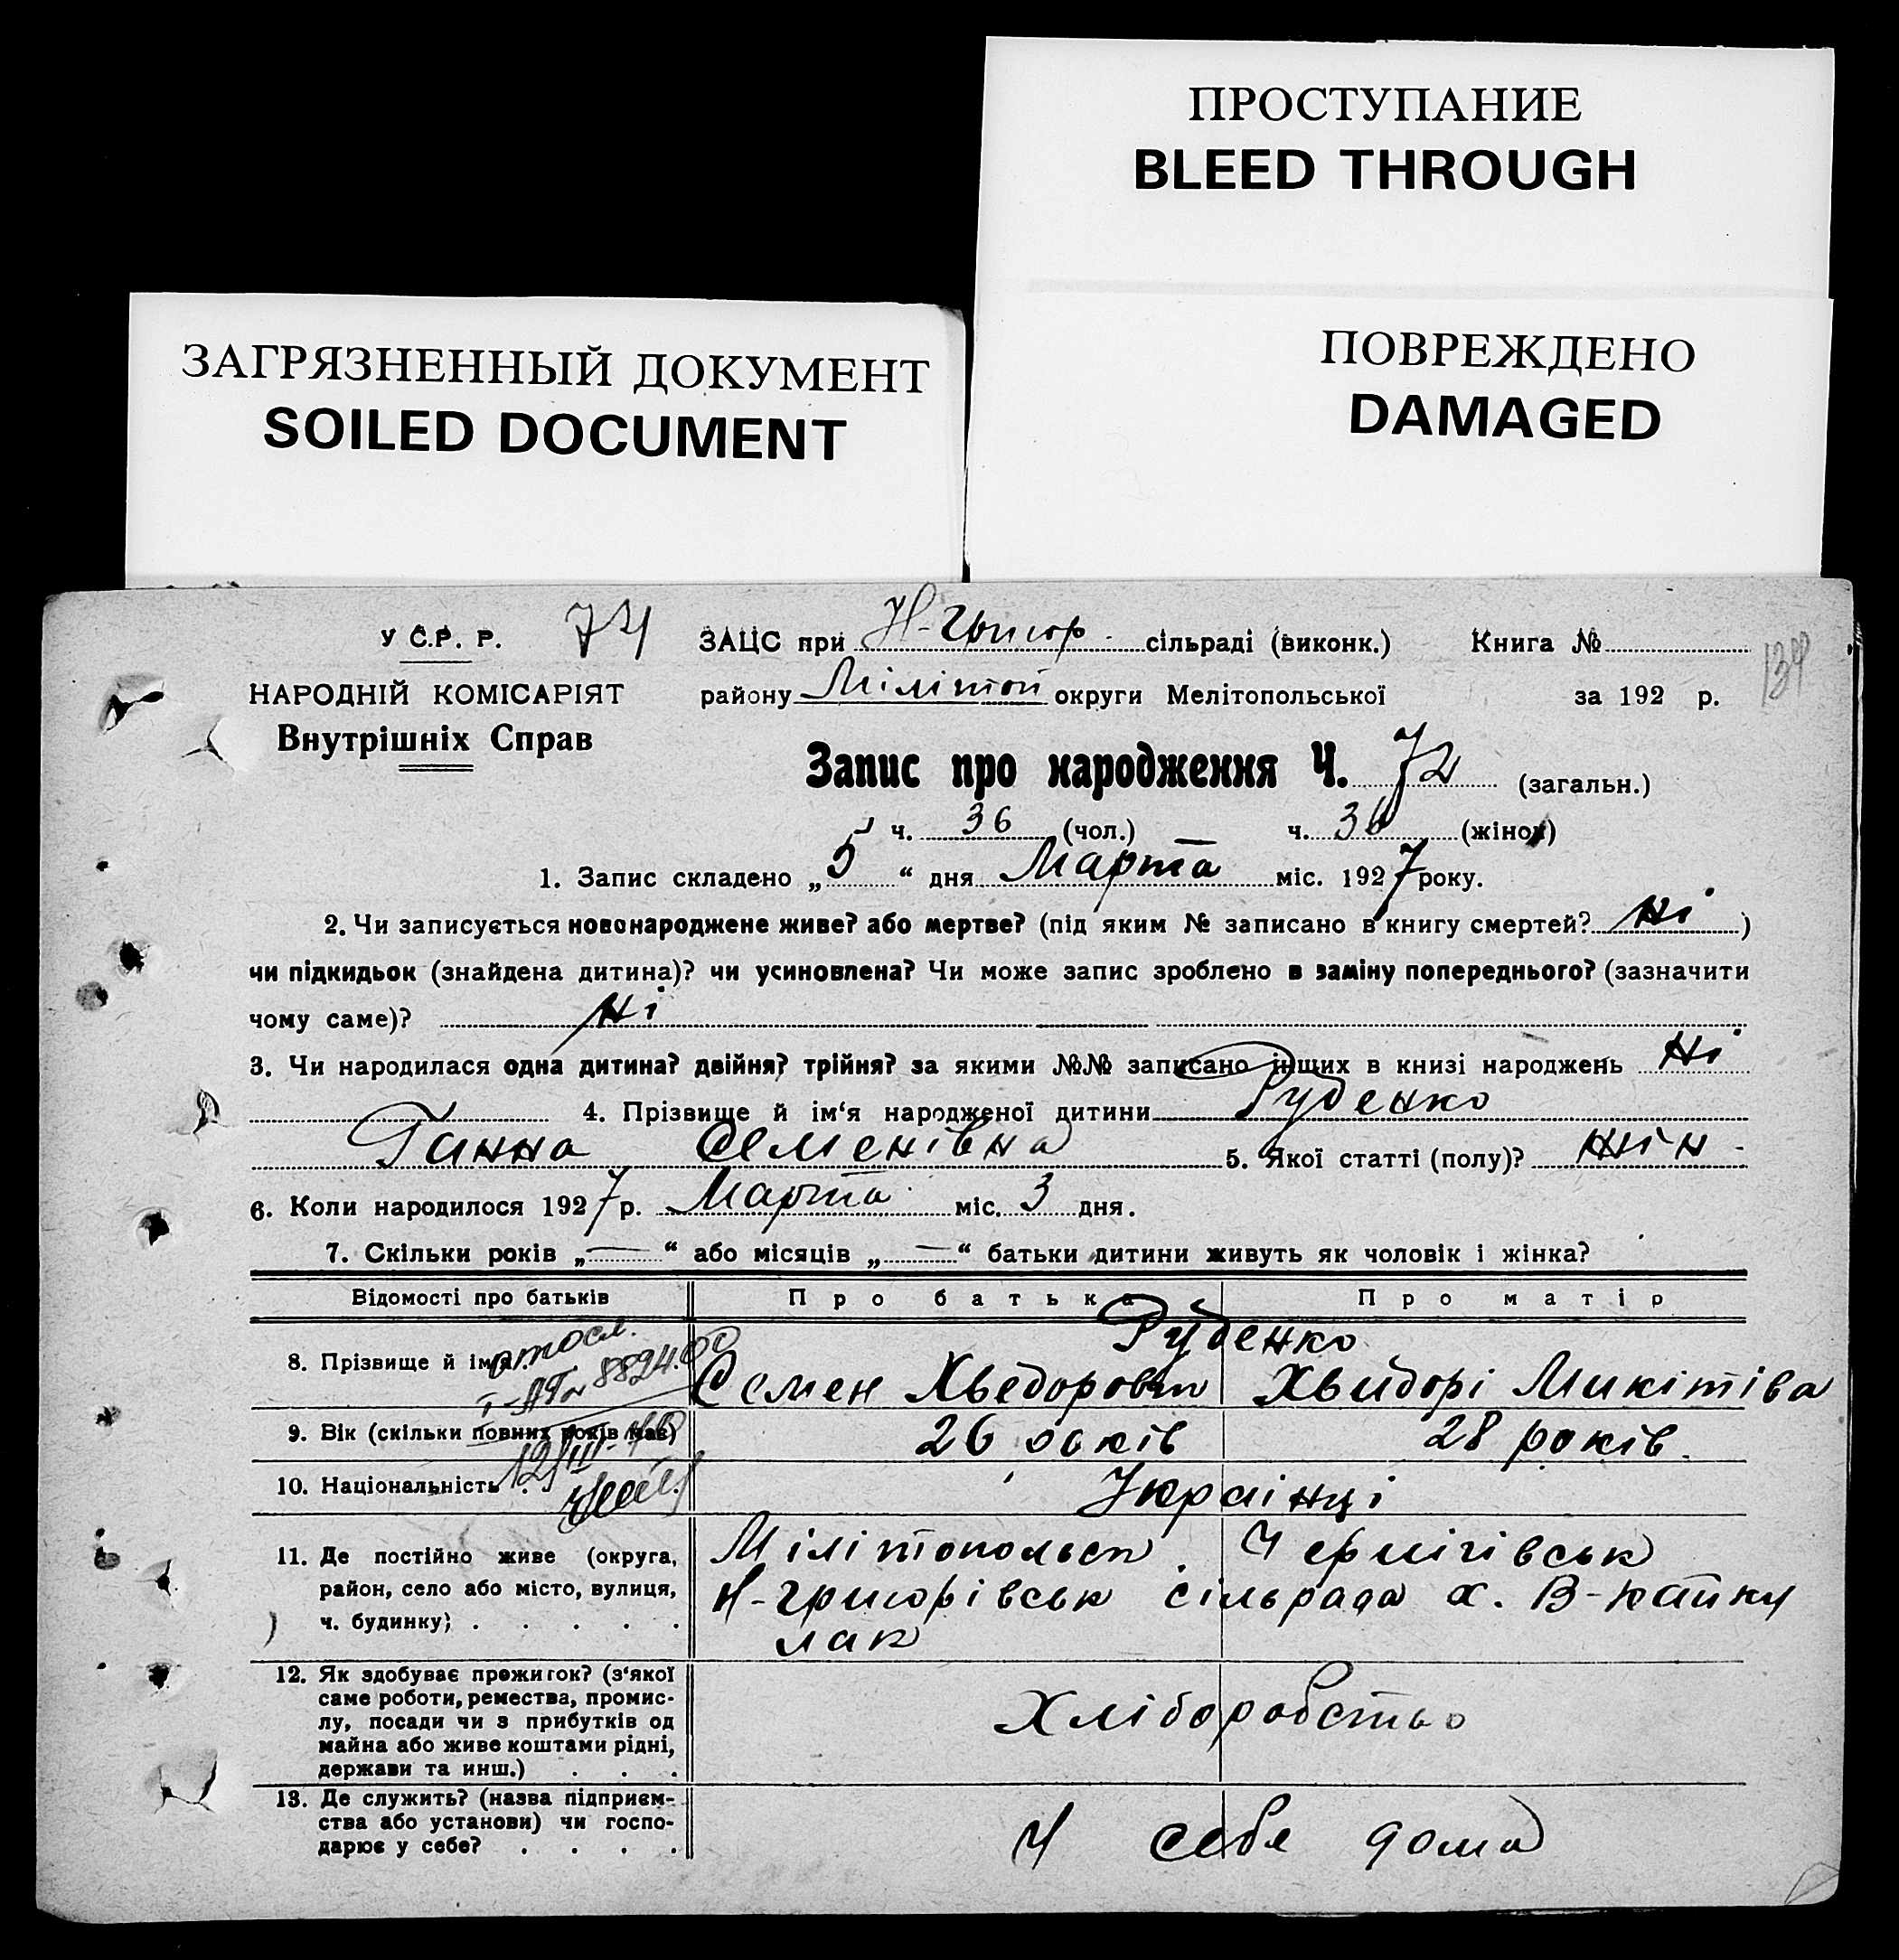 ПРОСТУПАНИЕ
BLEED THROUGH
ЗАГРЯЗНЕННЫЙ ДОКУМЕНТ
SOILED DOCUMENT
ПОВРЕЖДЕНО
DAMAGED
У С.Р. Р. 74 ЗАЦС при Н-Григор. сільраді (виконк.) Книга №
134
НАРОДНІЙ КОМІСАРІЯТ району Міліптоп округи Мелітопольської за 192 р.
Внутрішніх Справ
Запис про народження Ч. 72 (загальн.)
ч. 36 (чол.) ч. 36 (жіноч)
1. Запис складено „5“ дня Марта міс. 1927 року.
2. Чи записується новонароджене живе? або мертве? (під яким № записано в книгу смертей? Ні)
чи підкидьок (знайдена дитина)? чи усиновлена? Чи може запис зроблено в заміну попереднього? (зазначити
чому саме)? Ні
3. Чи народилася одна дитина? двійня? трійня? за якими №№ записано інщих в книзі народжень Ні
4. Прізвище й ім‘я народженої дитини Руденко
Ганна Семенівна 5. Якої статті (полу)? жін-
6. Коли народилося 1927 р. Марта міс. 3 дня.
7. Скільки років „—“ або місяців „—“ батьки дитини живуть як чоловік і жінка?
Відомості про батьків Про батька Про матір
Руденко
8. Прізвище й ім‘я Семен Хведорович Хвидорі Микітіва
9. Вік (скільки повних років мав) 26 років 28 років
10. Національність . . Українці
11. Де постійно живе (округа, Міліптопольск. Чернігівськ
район, село або місто, вулиця, Н-григорівськ сільрада х. В-кайку
ч. будинку) . . . . . лак
12. Як здобуває прожиток? (з‘якої
саме роботи, ремества, промис-
лу, посади чи з прибутків од
майна або живе коштами рідні,
держави та инш.) . . .
Хліборобство
13. Де служить? (назва підприєм-
ства або установи) чи госпо-
дарює у себе? . . . .
У себе дома